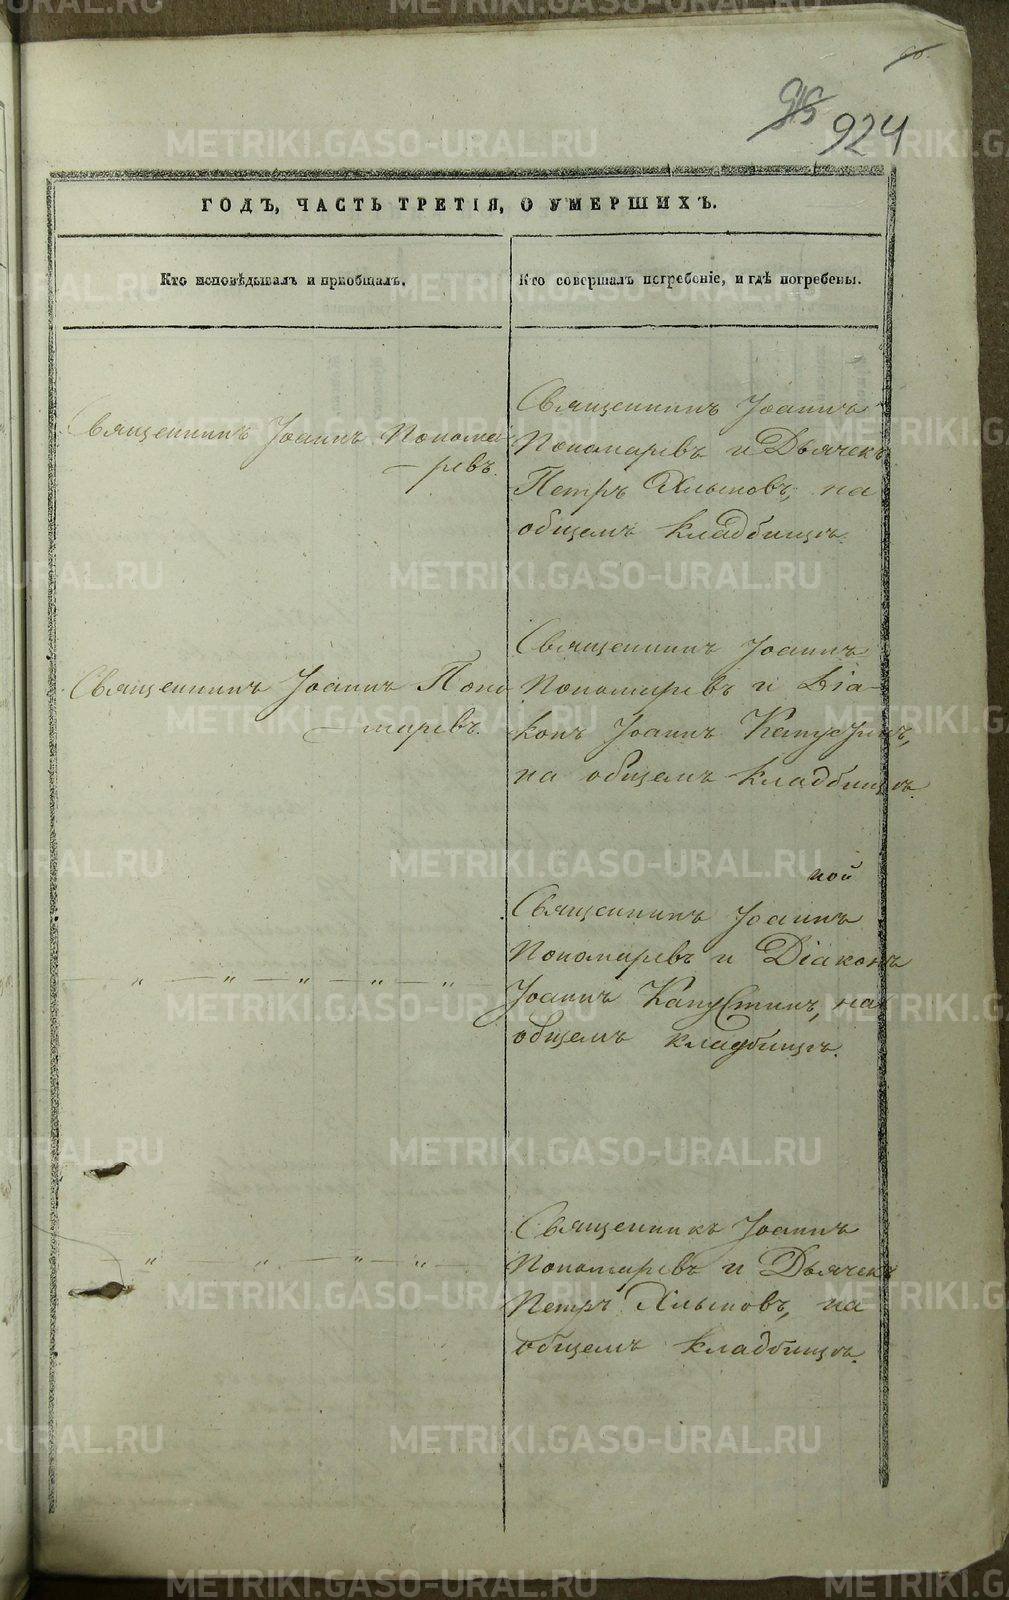 924
ГОДЪ, ЧАСТЬ ТРЕТІЯ, О УМЕРШИХЪ.
Кто исповѣдывалъ и пріобщалъ.
Кто совершалъ погребеніе, и гдѣ погребены.
Священникъ Іоаннъ Понома
ревъ.
Священникъ Іоаннъ
Пономаревъ и Дьячекъ
Петръ на
общемъ кладбищѣ.
Священникъ Іоаннъ Поно
маревъ.
Священникъ Іоаннъ
Пономаревъ и Діа-
конъ Іоаннъ Капустинъ,
на общемъ кладбищѣ.
ной
Священникъ Іоаннъ
Пономаревъ и Діаконъ
Іоаннъ Капустинъ, на
общемъ кладбищѣ.
— „ — „ — „ — „ — „ —
Священникъ Іоаннъ
Пономаревъ и Дьячекъ
Петръ на
общемъ кладбищѣ.
— „ — „ — „ — „ —
METRIKI.GASO-URAL.RU